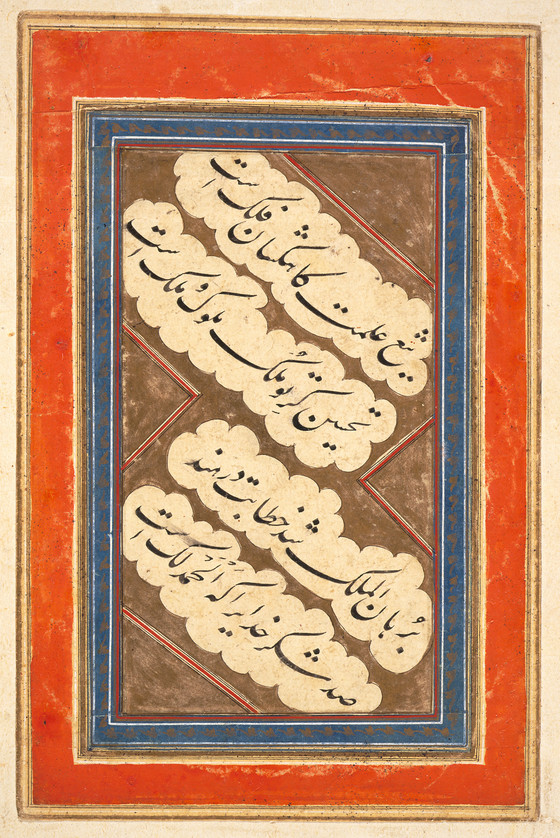 تیغ علمت کاهکشان فلک است
تحسین گر تو ملک ملوک و ملک است
برهان الملک شد خطابت در هند
صد شکر خدایرا که الحمد لک است